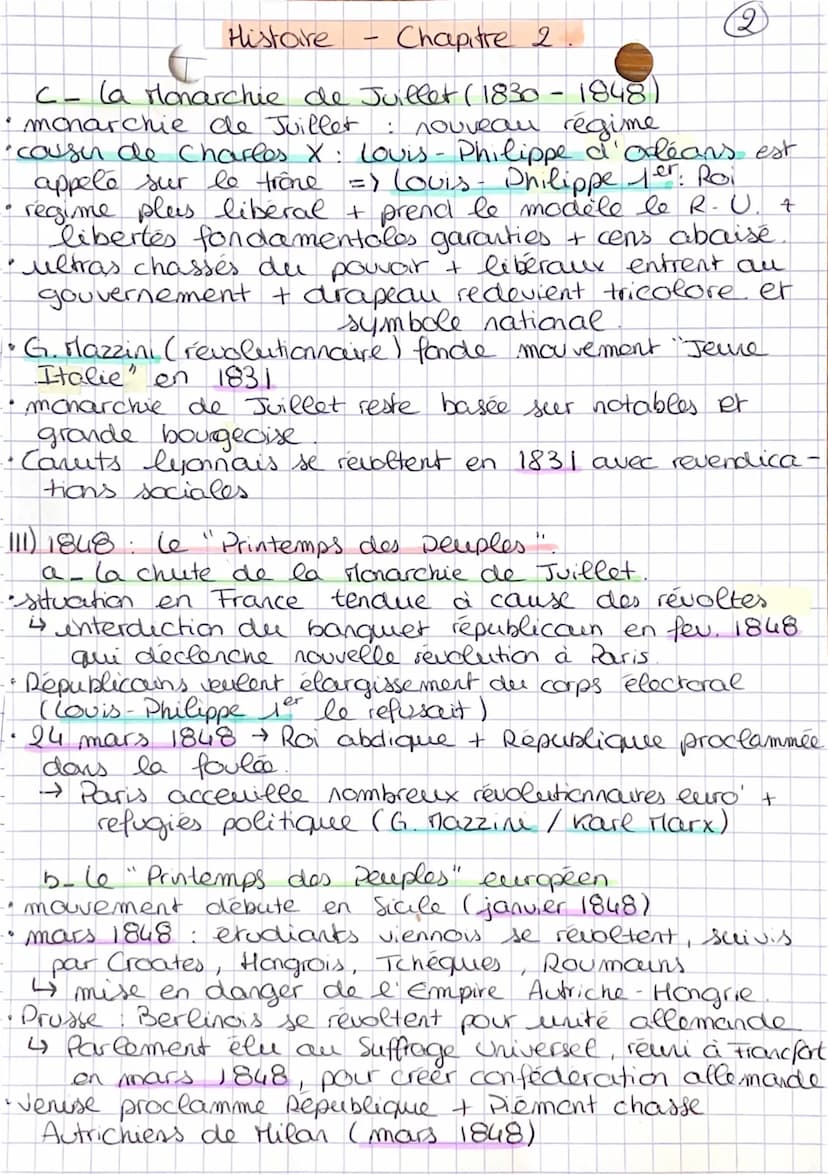 2
Histoire - Chapitre 2.
c - La Monarchie de Juillet (1830 - 1848)
• monarchie de Juillet : nouveau régime
• cousin de Charles X : Louis - Philippe d'Orléans est
appelé sur le trône => Louis - Philippe 1er : Roi
• régime plus libéral + prend le modèle le R. U. +
libertés fondamentales garanties + cens abaisé.
• ultras chassés du pouvoir + libéraux entrent au
gouvernement + drapeau redevient tricolore et
symbole national.
• G. Mazzini (révolutionnaire) fonde mouvement "Jeune
Italie" en 1831
• monarchie de Juillet reste basée sur notables et
grande bourgeoise.
• Canuts lyonnais se révoltent en 1831 avec revendica-
tions sociales
III) 1848 : Le "Printemps des Peuples".
a - La chute de la Monarchie de Juillet.
• situation en France tendue à cause des révoltes
↳ interdiction du banquet républicain en fev. 1848
qui déclenche nouvelle révolution à Paris.
• Républicains veulent élargissement du corps électoral
(Louis - Philippe 1er le refusait)
• 24 mars 1848 → Roi abdique + République proclammée
dans la foulée.
→ Paris acceuille nombreux révolutionnaires euro' +
refugiés politique (G. Mazzini / Karl Marx)
b - Le "Printemps des Peuples" européen
• mouvement débute en Sicile (janvier 1848)
• mars 1848 : étudiants viennois se révoltent, suivis
par Croates, Hongrois, Tchèques, Roumains
↳ mise en danger de l'Empire Autriche - Hongrie.
• Prusse : Berlinois se révoltent pour unité allemande
↳ Parlement élu au Suffrage Universel, réuni à Francfort
en mars 1848, pour créer confédération allemande
• Venise proclamme République + Piémont chasse
Autrichiens de Milan (mars 1848)